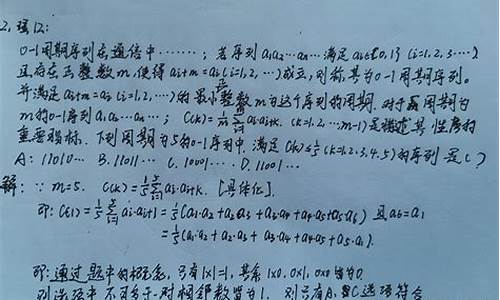 2, 理12:
0-1周期序列在通信中………; 若序列a₁a₂…aₙ…满足aᵢ∈{0,1} (i=1,2,3…)
且存在正整数m, 使得aᵢ+m=aᵢ(i=1,2,…)成立, 则称其为0-1周期序列。
并满足aᵢ+m=aᵢ(i=1,2,…)的最小正整数m为这个序列的周期. 对于周期为
m的0-1序列a₁,a₂…aₙ…; C(k)=1/m Σ aᵢ·aᵢ+k. (k=1,2,…,m-1)是描述其性质的
重要指标. 下列周期为5的0-1序列中, 满足C(k)≤1/5 (k=1,2,3,4,5)的序列是( )
A: 11010… B. 11011… C. 10001… D. 11001…
解: ∵ m=5. C(k)=1/5 Σ aᵢ·aᵢ+k. [具体化].
即: C(1)=1/5 Σ aᵢ·aᵢ+1=1/5(a₁·a₂+a₂·a₃+a₃·a₄+a₄·a₅+a₅·a₆) 且a₆=a₁
=1/5(a₁·a₂+a₂·a₃+a₃·a₄+a₄·a₅+a₅·a₁).
即: 通过题中的概念, 只有1×1=1, 其余1×0, 0×1, 0×0皆为0.
则选项中不可多于一对相邻数皆为1, 则只有A, C选项符合